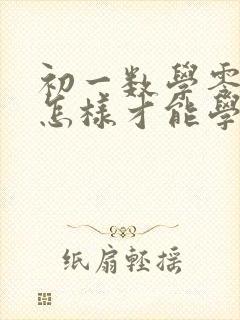 初一数學零
怎樣才能學
纸扇輕摇